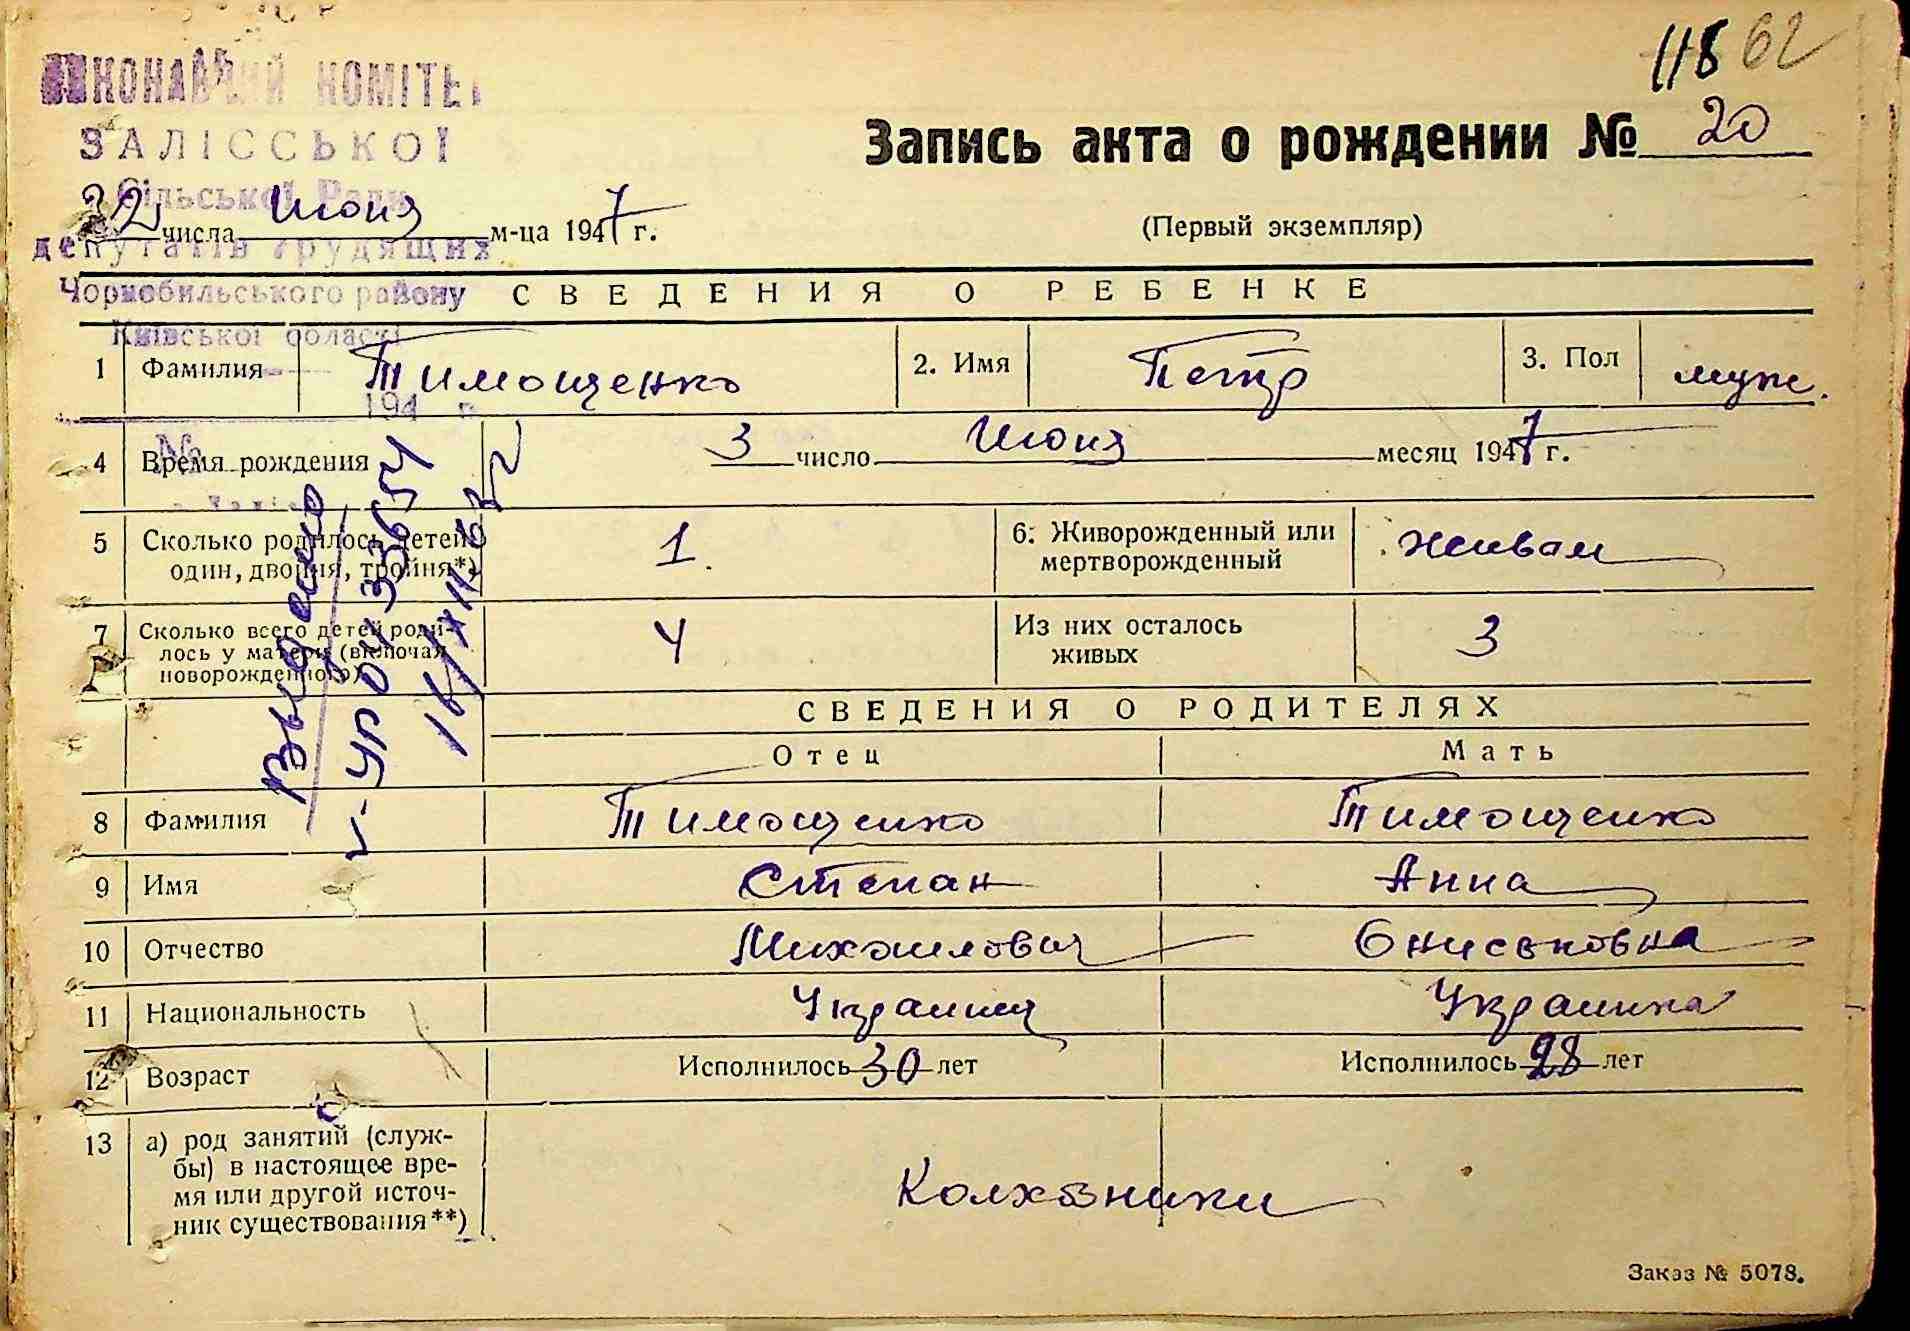 118 62
ВИКОНАВЧИЙ КОМІТЕТ
ЗАЛІССЬКОЇ
Сільської Ради
депутатів трудящих
Чорнобильського району
Київської області
194 р.
№
Запись акта о рождении № 20
22 числа Июня м-ца 1947 г.
(Первый экземпляр)
СВЕДЕНИЯ О РЕБЕНКЕ
1 Фамилия Тимощенко 2. Имя Петр 3. Пол муж.
4 Время рождения 3 число Июня месяц 1947 г.
5 Сколько родилось детей: один, двойня, тройня*) 1. 6. Живорожденный или мертворожденный живым
7 Сколько всего детей родилось у матери (включая новорожденного) 4 Из них осталось живых 3
Выдано
У-УР 013365
16/XII
СВЕДЕНИЯ О РОДИТЕЛЯХ
Отец Мать
8 Фамилия Тимощенко Тимощенко
9 Имя Степан Анна
10 Отчество Михайлович Ониськовна
11 Национальность Украинец Украинка
12 Возраст Исполнилось 30 лет Исполнилось 28 лет
13 а) род занятий (служ-
бы) в настоящее вре-
мя или другой источ-
ник существования**) Колхозники
Заказ № 5078.